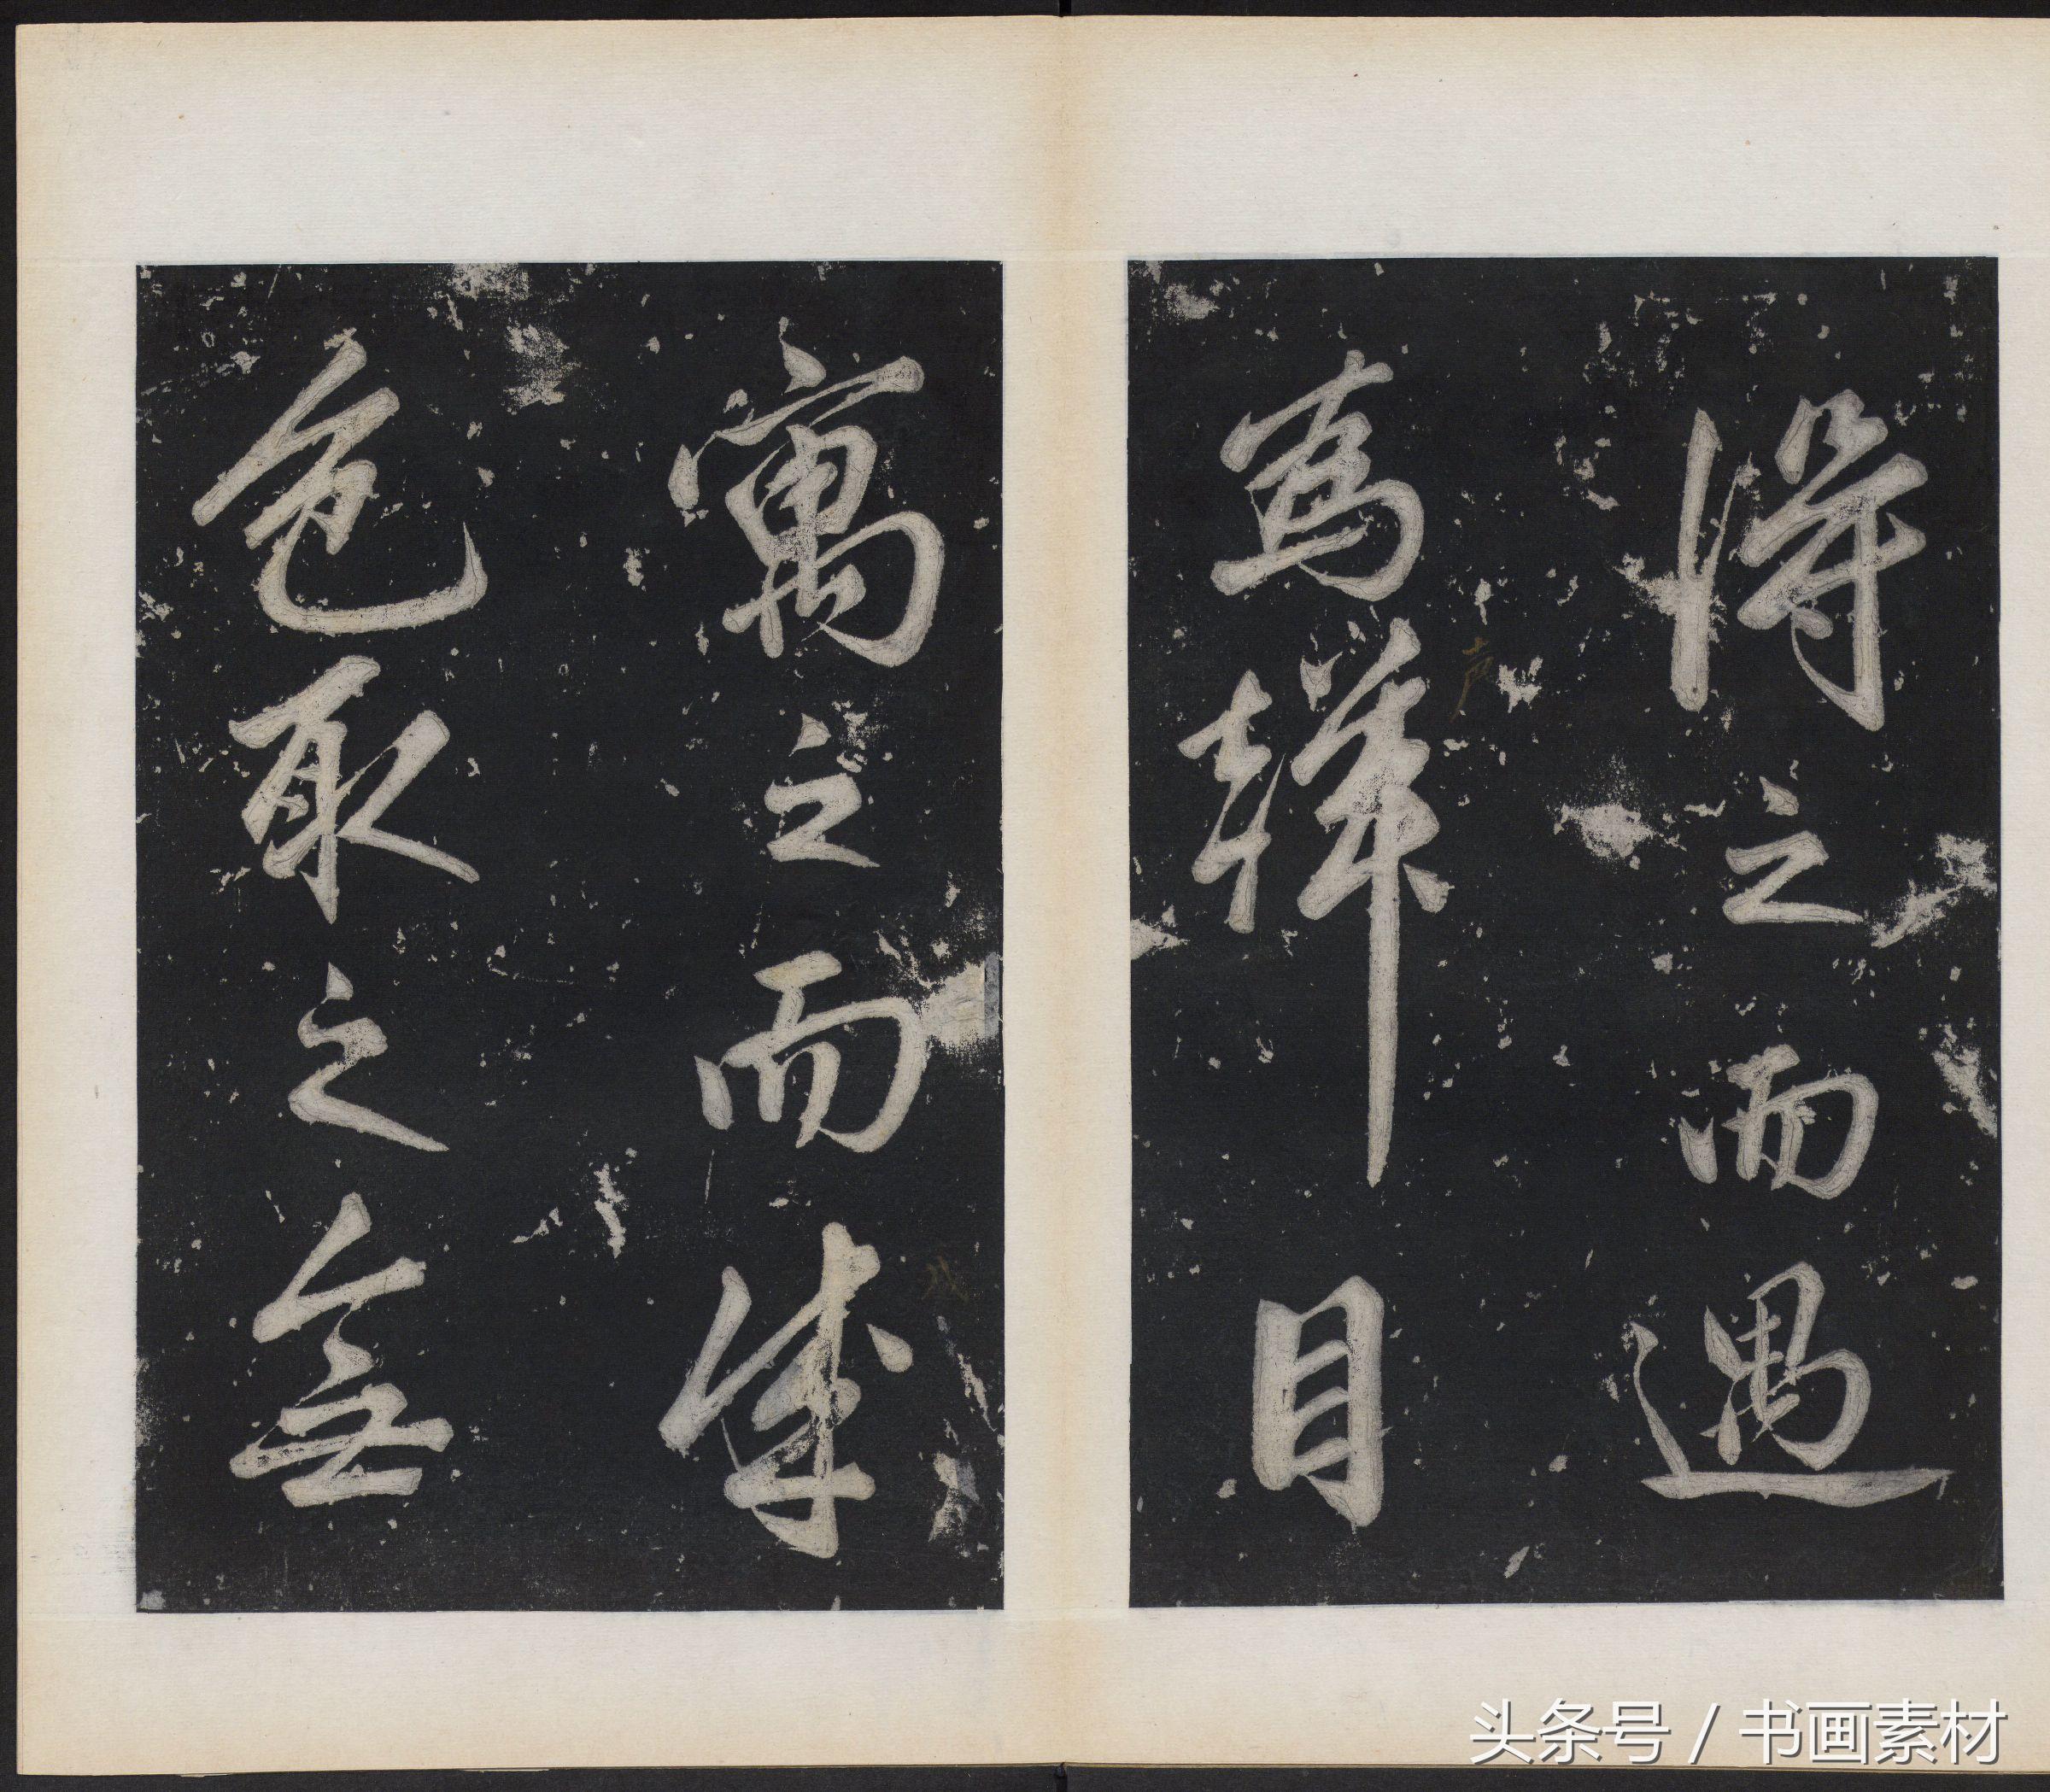 得之而遇
為目
声
寓之而成
成
色取之無
头条号 / 书画素材